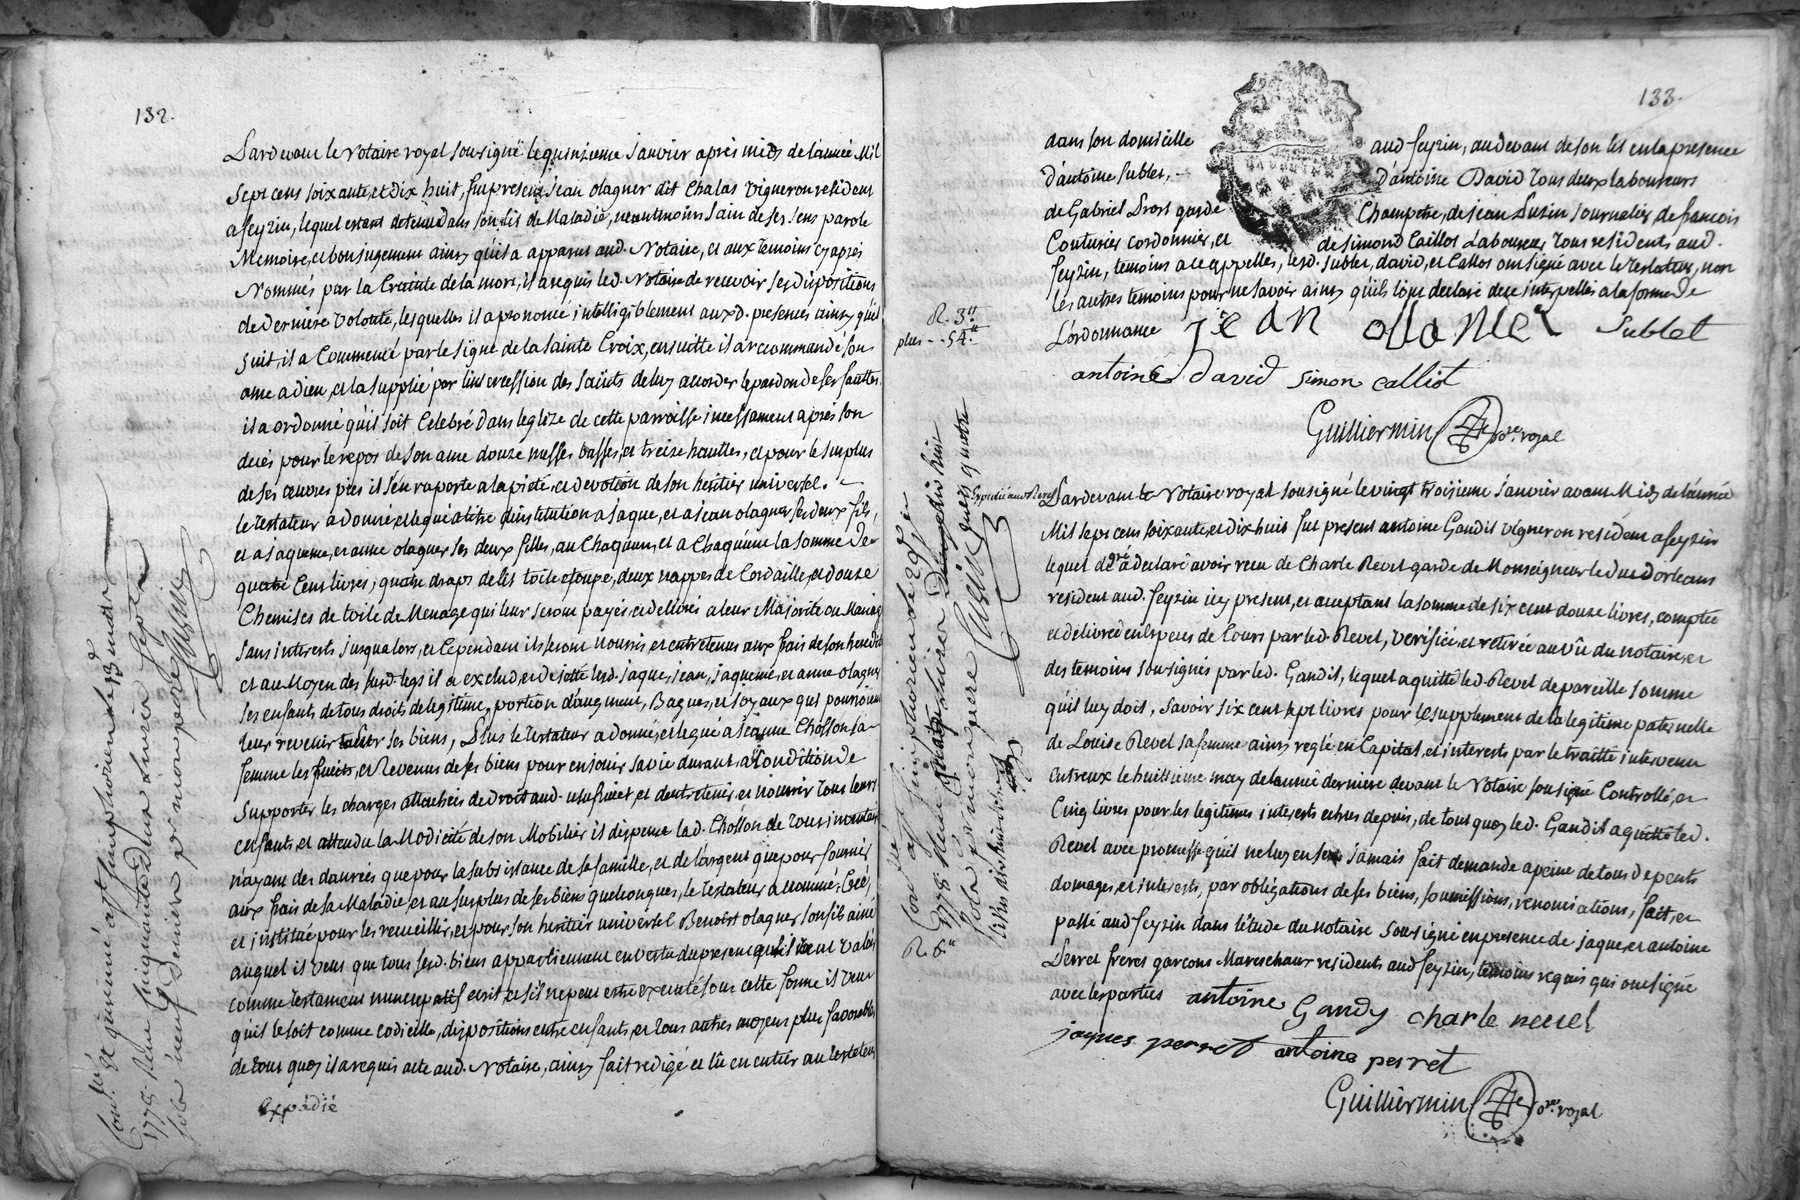 132.
Pardevant le Notaire royal sousigné le quinzieme janvier apres midy de l'année Mil
sept cens soixante, et dix huit, fut present jean olagner dit Chalas vigneron resident
a feyzin, lequel estant detenu dans son lit de Maladie, neantmoins sain de ses sens parole
Memoire, et bon jugement ainsy qu'il a apparus aud. Notaire, et aux temoins cy apres
Nommés par la Crainte de la mort, il a requis led. Notaire de recevoir ses dispositions
de derniere volonté, lesquelles il a prononcé intelligiblement auxd. presences ainsy qu'il
suit, il a Commencé par le signe de la sainte Croix, ensuitte il a recommandé son
ame a dieu, et la supplié par l'intercession des saints de luy accorder le pardon de ses fauttes.
il a ordonné qu'il soit Celebré dans leglize de cette parroisse incessament apres son
decés pour le repos de son ame douze messes basses, et treize hauttes, et pour le surplus
de ses oeuvres pies il s'en raporte a la pieté, et devotion de son heritier universel.
le testateur a donné, et legué a titre d'institution a jaque, et a jean olagner ses deux fils,
et a jaqueme, et anne olagner ses deux filles, au Chaquun, et a Chaquune la somme de
quatre Cent livres, quatre draps de lit toile etoupe, deux nappes de Cordaille, et douze
Chemises de toile de Menage qui leur seront payés, et delivrés a leur Majorité ou Mariage
sans interests jusqua lors, et Cependant ils seront nourris et entretenus aux frais de son heredité
et au Moyen des susd. legs il a exclud, et dejetté lesd. jaque, jean, jaqueme, et anne olagner
ses enfants de tous droits de legitime, portion d'augment, Bagues, et joyaux qui pourroient
leur revenir sur ses biens, Plus le testateur a donné, et legué a jeanne Chosson sa
femme les fruits, et Revenus de ses biens pour en jouir sa vie durant, a Condition de
supporter les charges attachées de Droit aud. usufruit et d'entretenir, et nourrir tous leurs
enfants, et attendu la Modicité de son Mobilier il dispense lad. Chosson de tous inventaire
n'ayant des danrées que pour la subsistance de sa famille, et de l'argent que pour fournir
aux frais de sa Maladie, et au surplus de ses biens quelconques, le testateur a nommé, Créé,
et institué pour les recueillir, et pour son heritier universel Benoît olagner son fils ainé
auquel il veut que tous sesd. biens appartiennent en vertu du present qu'il veut valoir
comme testament nuncupatif ecrit, et s'il ne peut estre executé sous cette forme il veut
qu'il le soit comme codicille, dispositions entre enfants, et tous autres moyens plus favorables
de tout quoy il a requis acte aud. Notaire, ainsy fait redigé et lû en entier au testateur
Expédié
Conlé. et quittancé a st simphorien le 23 mars
1778. Reçu cinquante deux livres sept s.
six neuf deniers pr mon pere
133.
dans son domicille aud feyzin, au devant de son lit en la presence
d'antoine sublet, d'antoine David tous deux laboureurs
de Gabriel Prost garde Champetre, de jean Luzin journalier, de francois
Couturier cordonnier, et de simond Caillot Laboureur tous residents aud.
feyzin, temoins a ce appellés, lesd. sublet, david, et Callot ont signé avec le testateur, non
les autres temoins pour ne savoir ainsy qu'ils l'ont declaré de ce interpellés a la forme de
L'ordonnance jean ollanier sublet
antoine david simon calliot
Guilliermin No.re royal
R. 3.tt
plus - - 54.tt
Expedié aud Revel
Pardevant le Notaire royal sousigné le vingt troisieme janvier avant Midy de l'année
Mil sept cens soixante, et dix huit fut present antoine Gandit vigneron resident a feyzin
lequel de gré a declaré avoir receu de Charle Revel garde de Monseigneur le duc dorleans
resident aud. feyzin icy present, et acceptant la somme de six cent douze livres, comptée
et delivrée en especes de Cours par led. Revel, verifiée, et retirée au vû du notaire, et
des temoins sousignés par led. Gandit, lequel a quitté led. Revel de pareille somme
qu'il luy doit, savoir six cent sept livres pour le supplement de la legitime paternelle
de Louise Revel sa femme ainsy reglé en Capital, et interests par le traitté intervenu
entreux le huitieme may de l'année derniere devant le Notaire sousigné Controllé, et
Cinq livres pour les legitimes interests echus depuis, de tout quoy led. Gandit a quitté led.
Revel avec promesse qu'il ne luy en sera jamais fait demande a peine de tous depents
domages, et interests, par obligations de ses biens, soumissions, renonciations, fait, et
passé aud feyzin dans l'étude du notaire sousigné en presence de jaque, et antoine
Perret freres garcons Mareschaux residents aud feyzin, temoins requis qui ont signé
avec les parties antoine Gandy charle revel
jaques perret antoine perret
Guilliermin No.re royal
Conlé a st simphorien le 29 jr
1778. Reçu quatre livres
pour mon pere
R. 6.tt